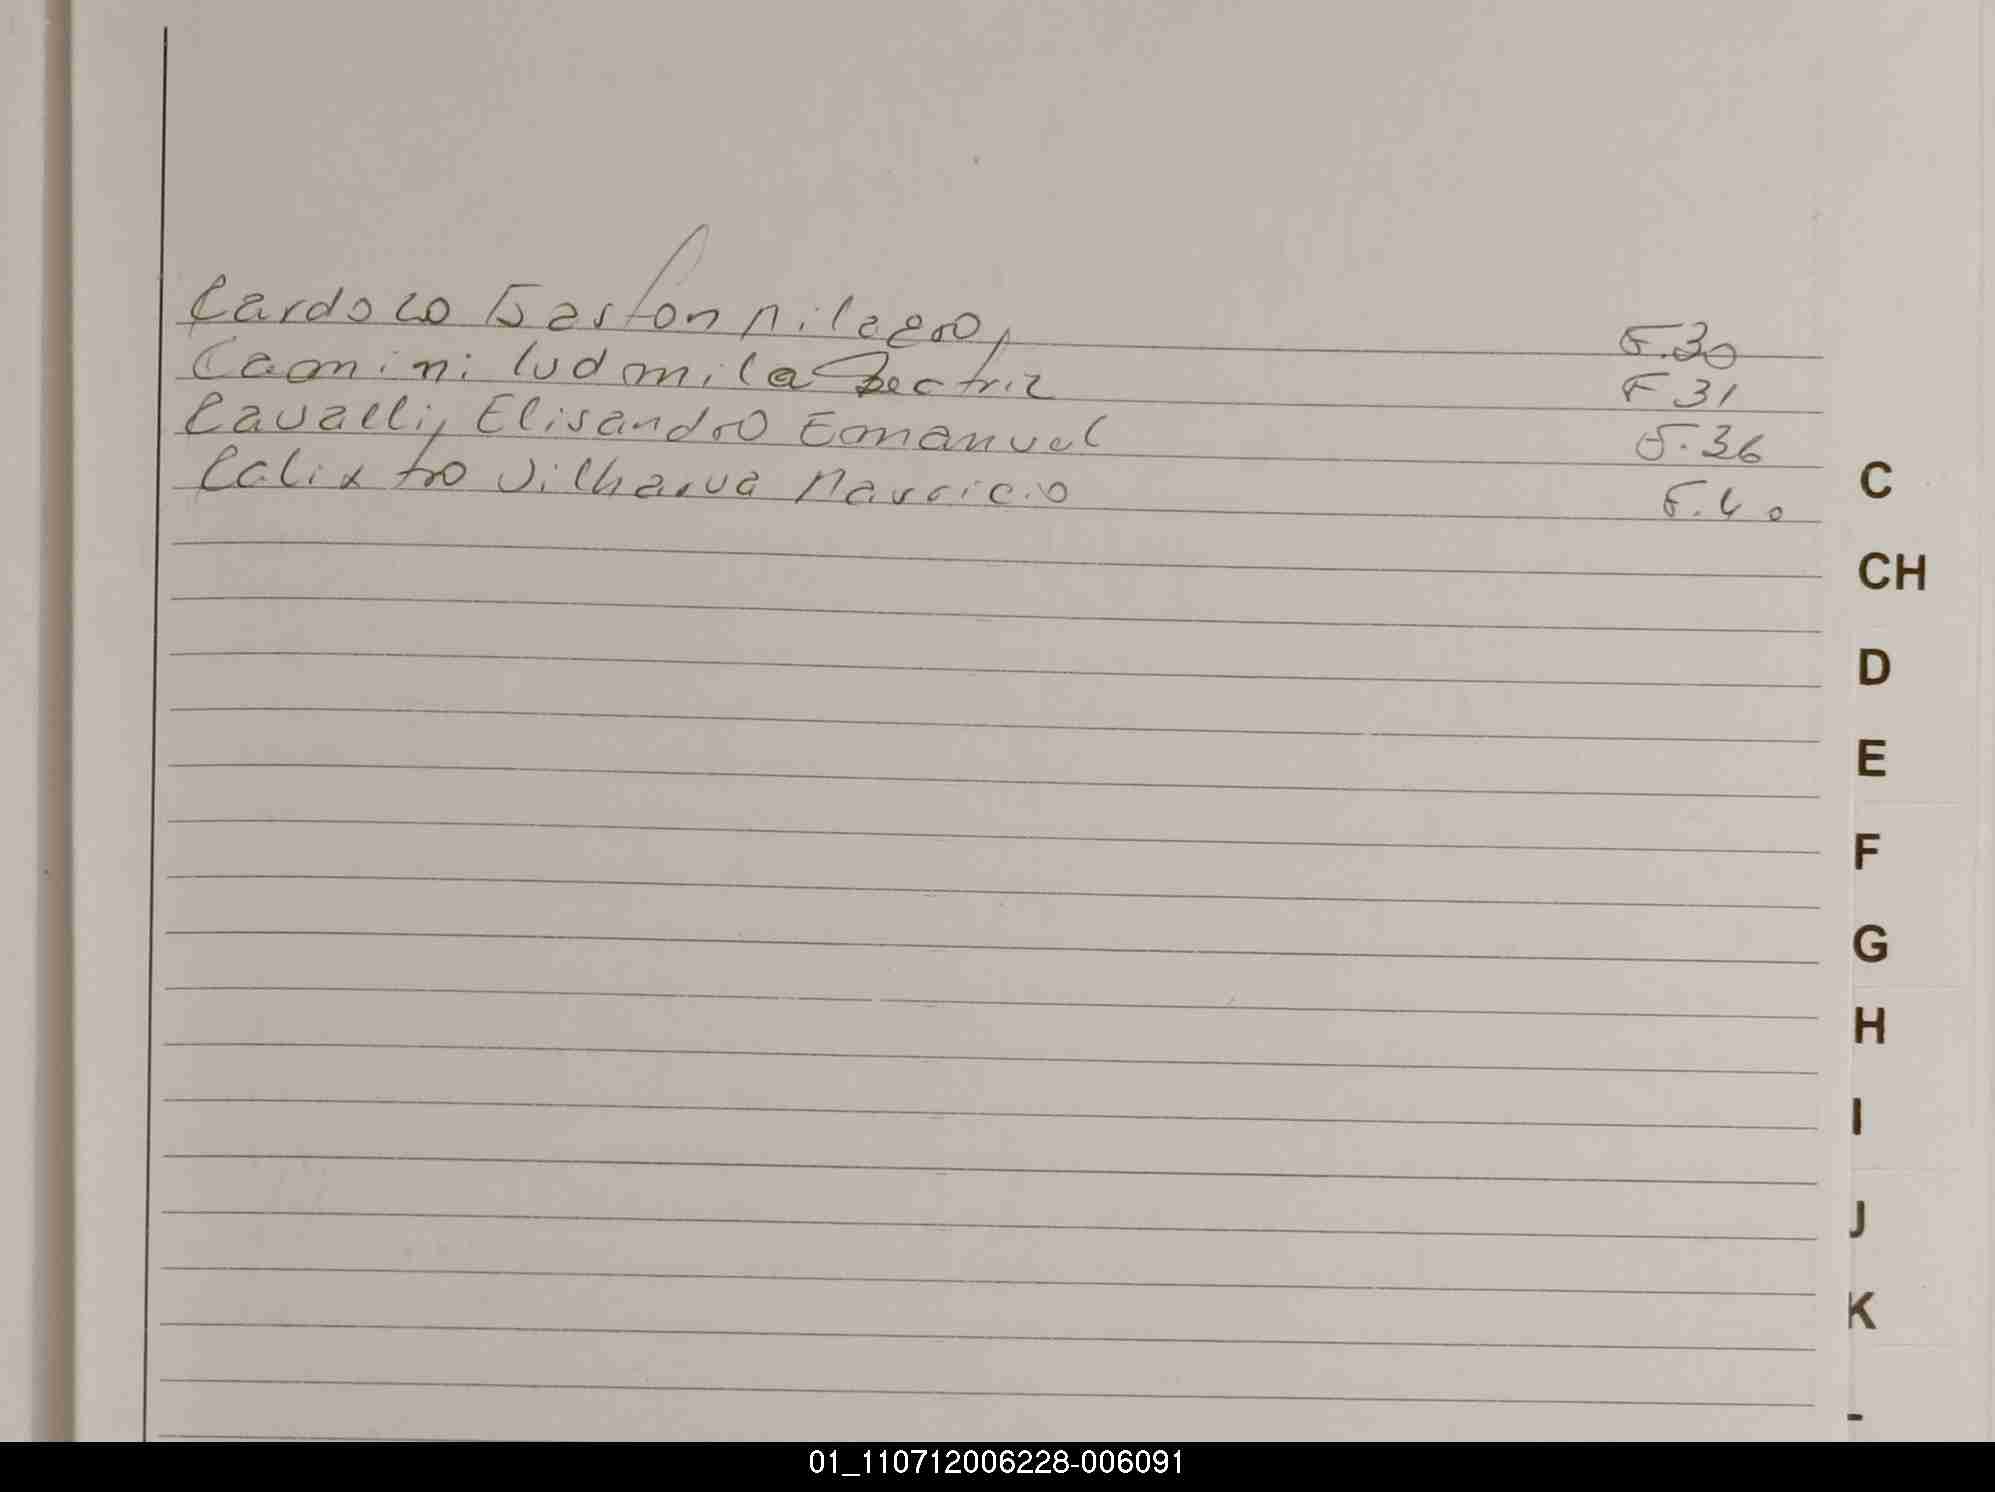 Cardozo Gaston Milagro, F.30
Camini Ludmila Beatriz F 31
Cavalli, Elisandro Emanuel F.36
Calixtro Vilharva Mauricio F.40
C
CH
D
E
F
G
H
I
J
K
01_110712006228-006091